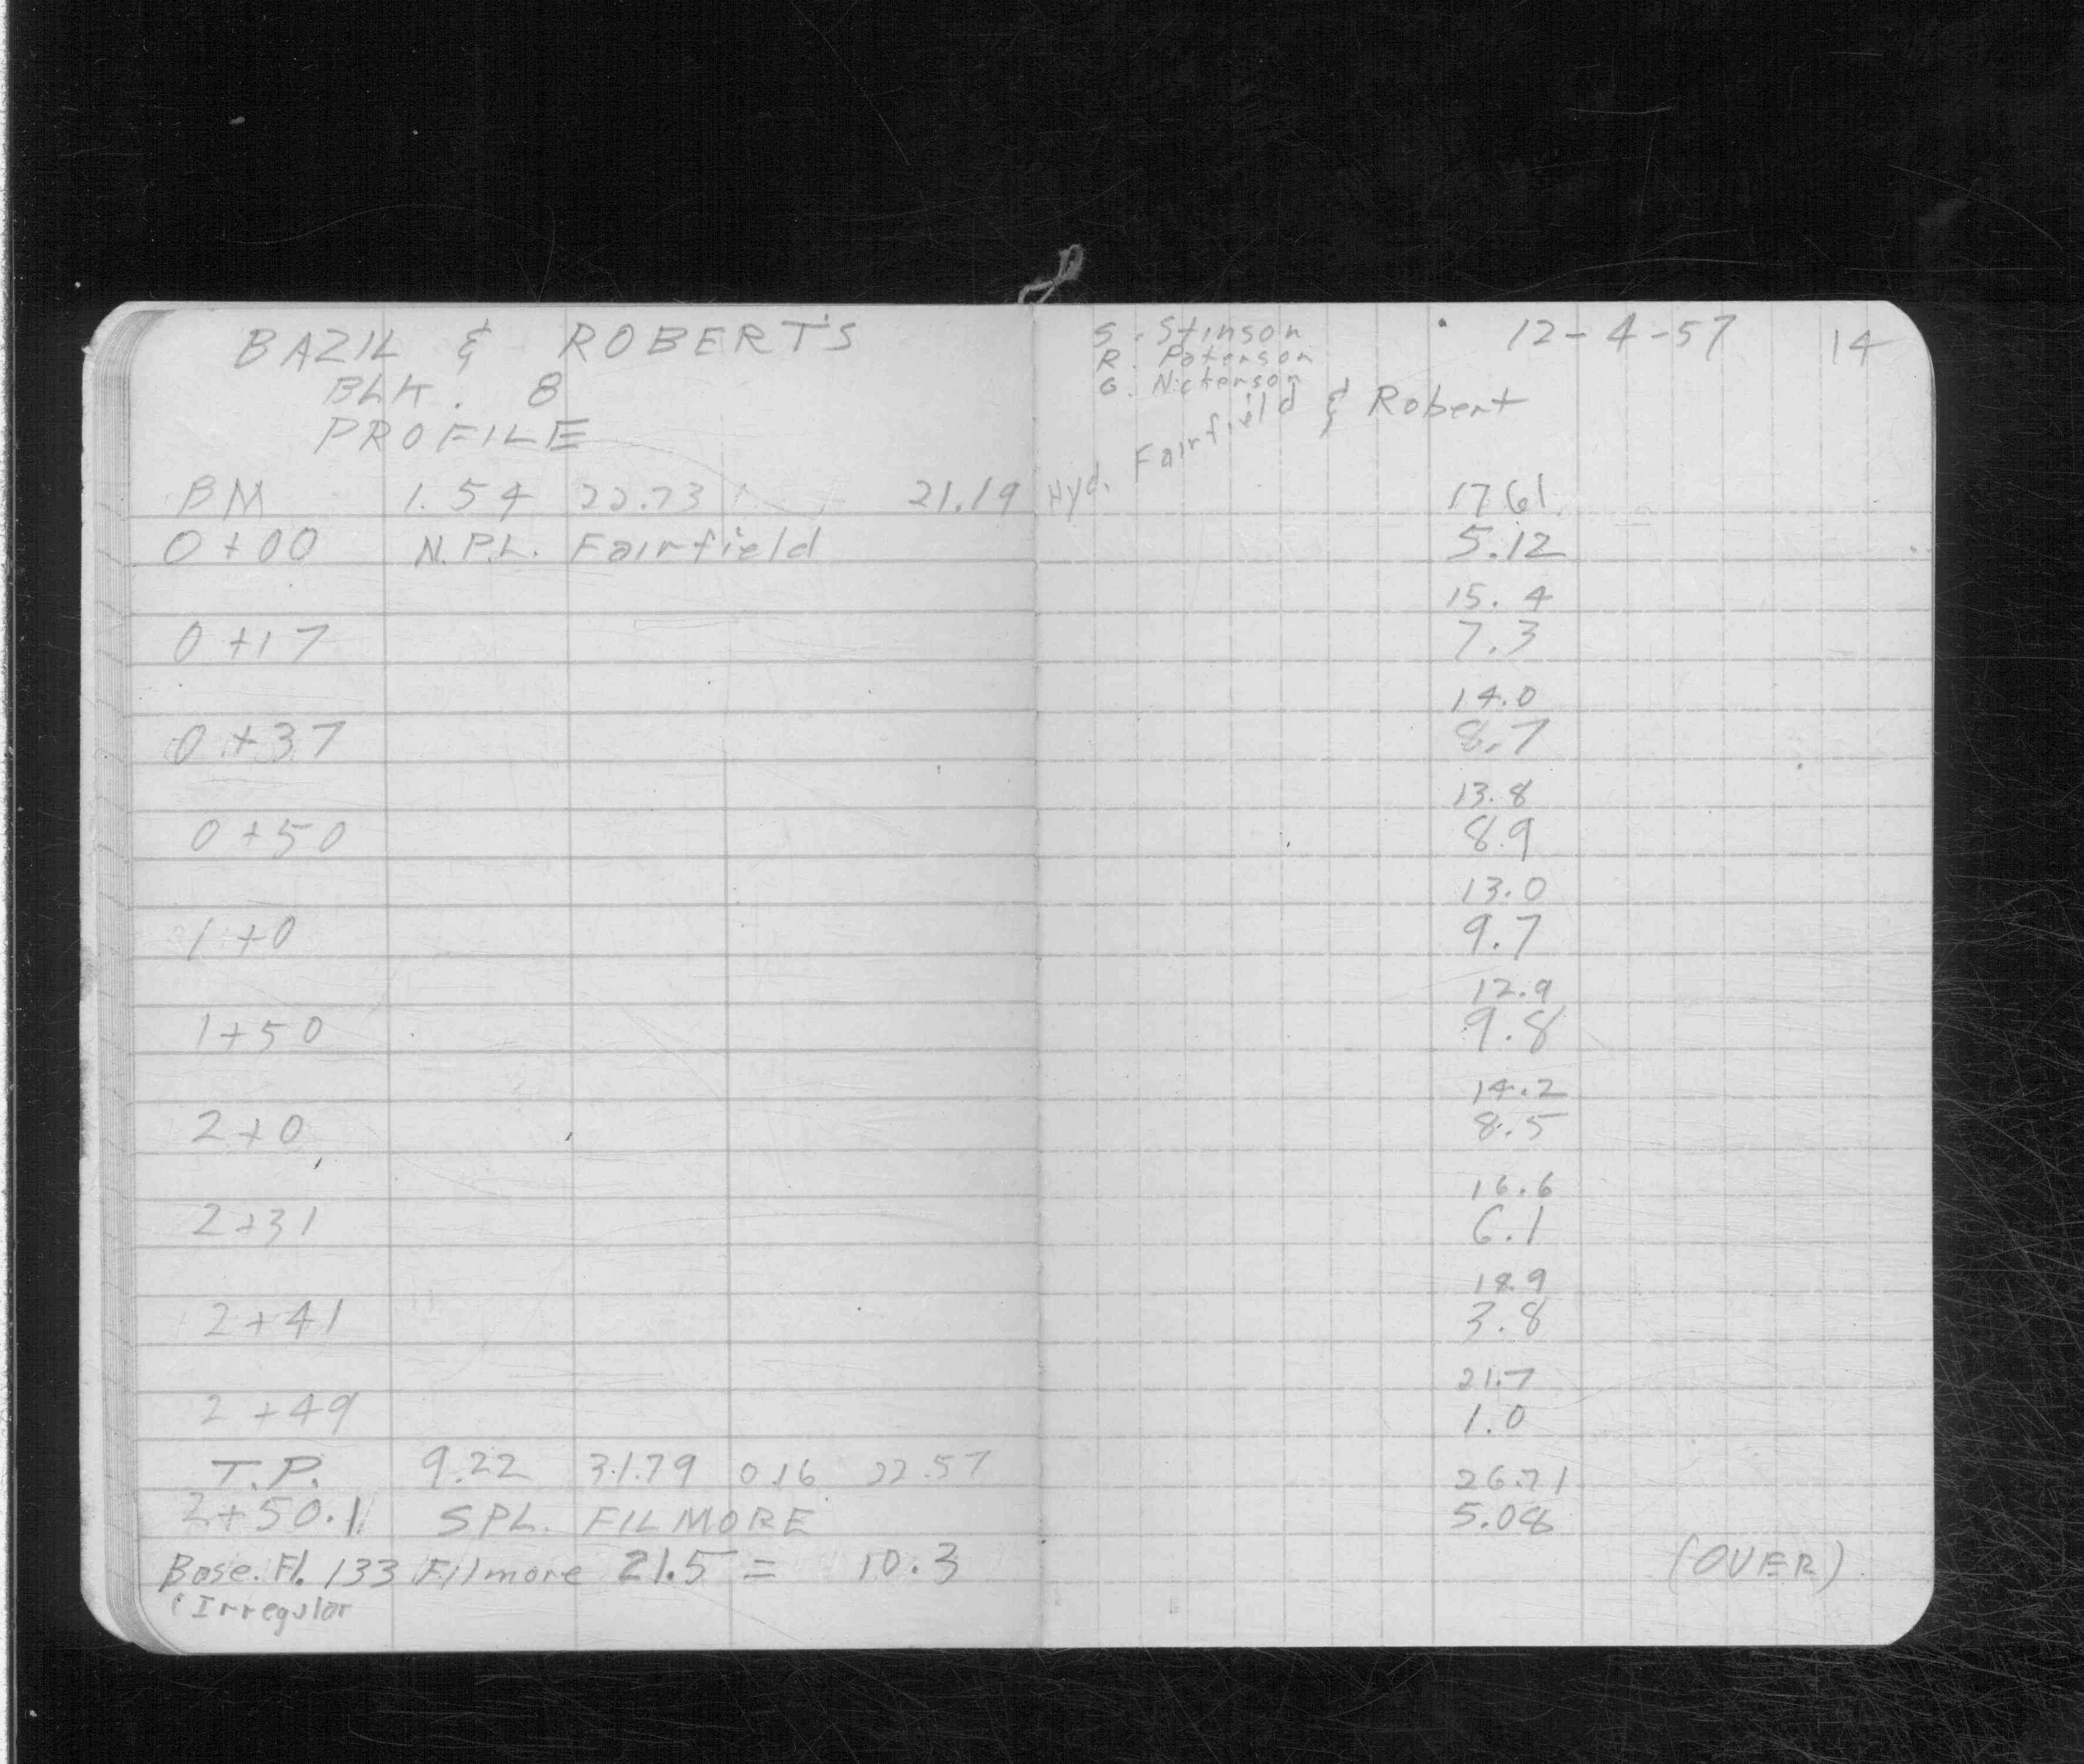 BAZIL & ROBERTS
BLK. 8
PROFILE
BM 1.54 22.73 21.19
0+00 N.P.L. Fairfield
0+17
0+37
0+50
1+0
1+50
2+0
2+31
2+41
2+49
T.P. 9.22 31.79 0.16 22.57
2+50.1 SPL. FILMORE
Base. Fl. 133 Filmore 21.5 = 10.3
(Irregular
S. Stinson 12-4-57 14
R. Paterson
G. Nickerson
Hyd. Fairfield & Robert
17.61
5.12
15.4
7.3
14.0
8.7
13.8
8.9
13.0
9.7
12.9
9.8
14.2
8.5
16.6
6.1
18.9
3.8
21.7
1.0
26.71
5.08
(OVER)